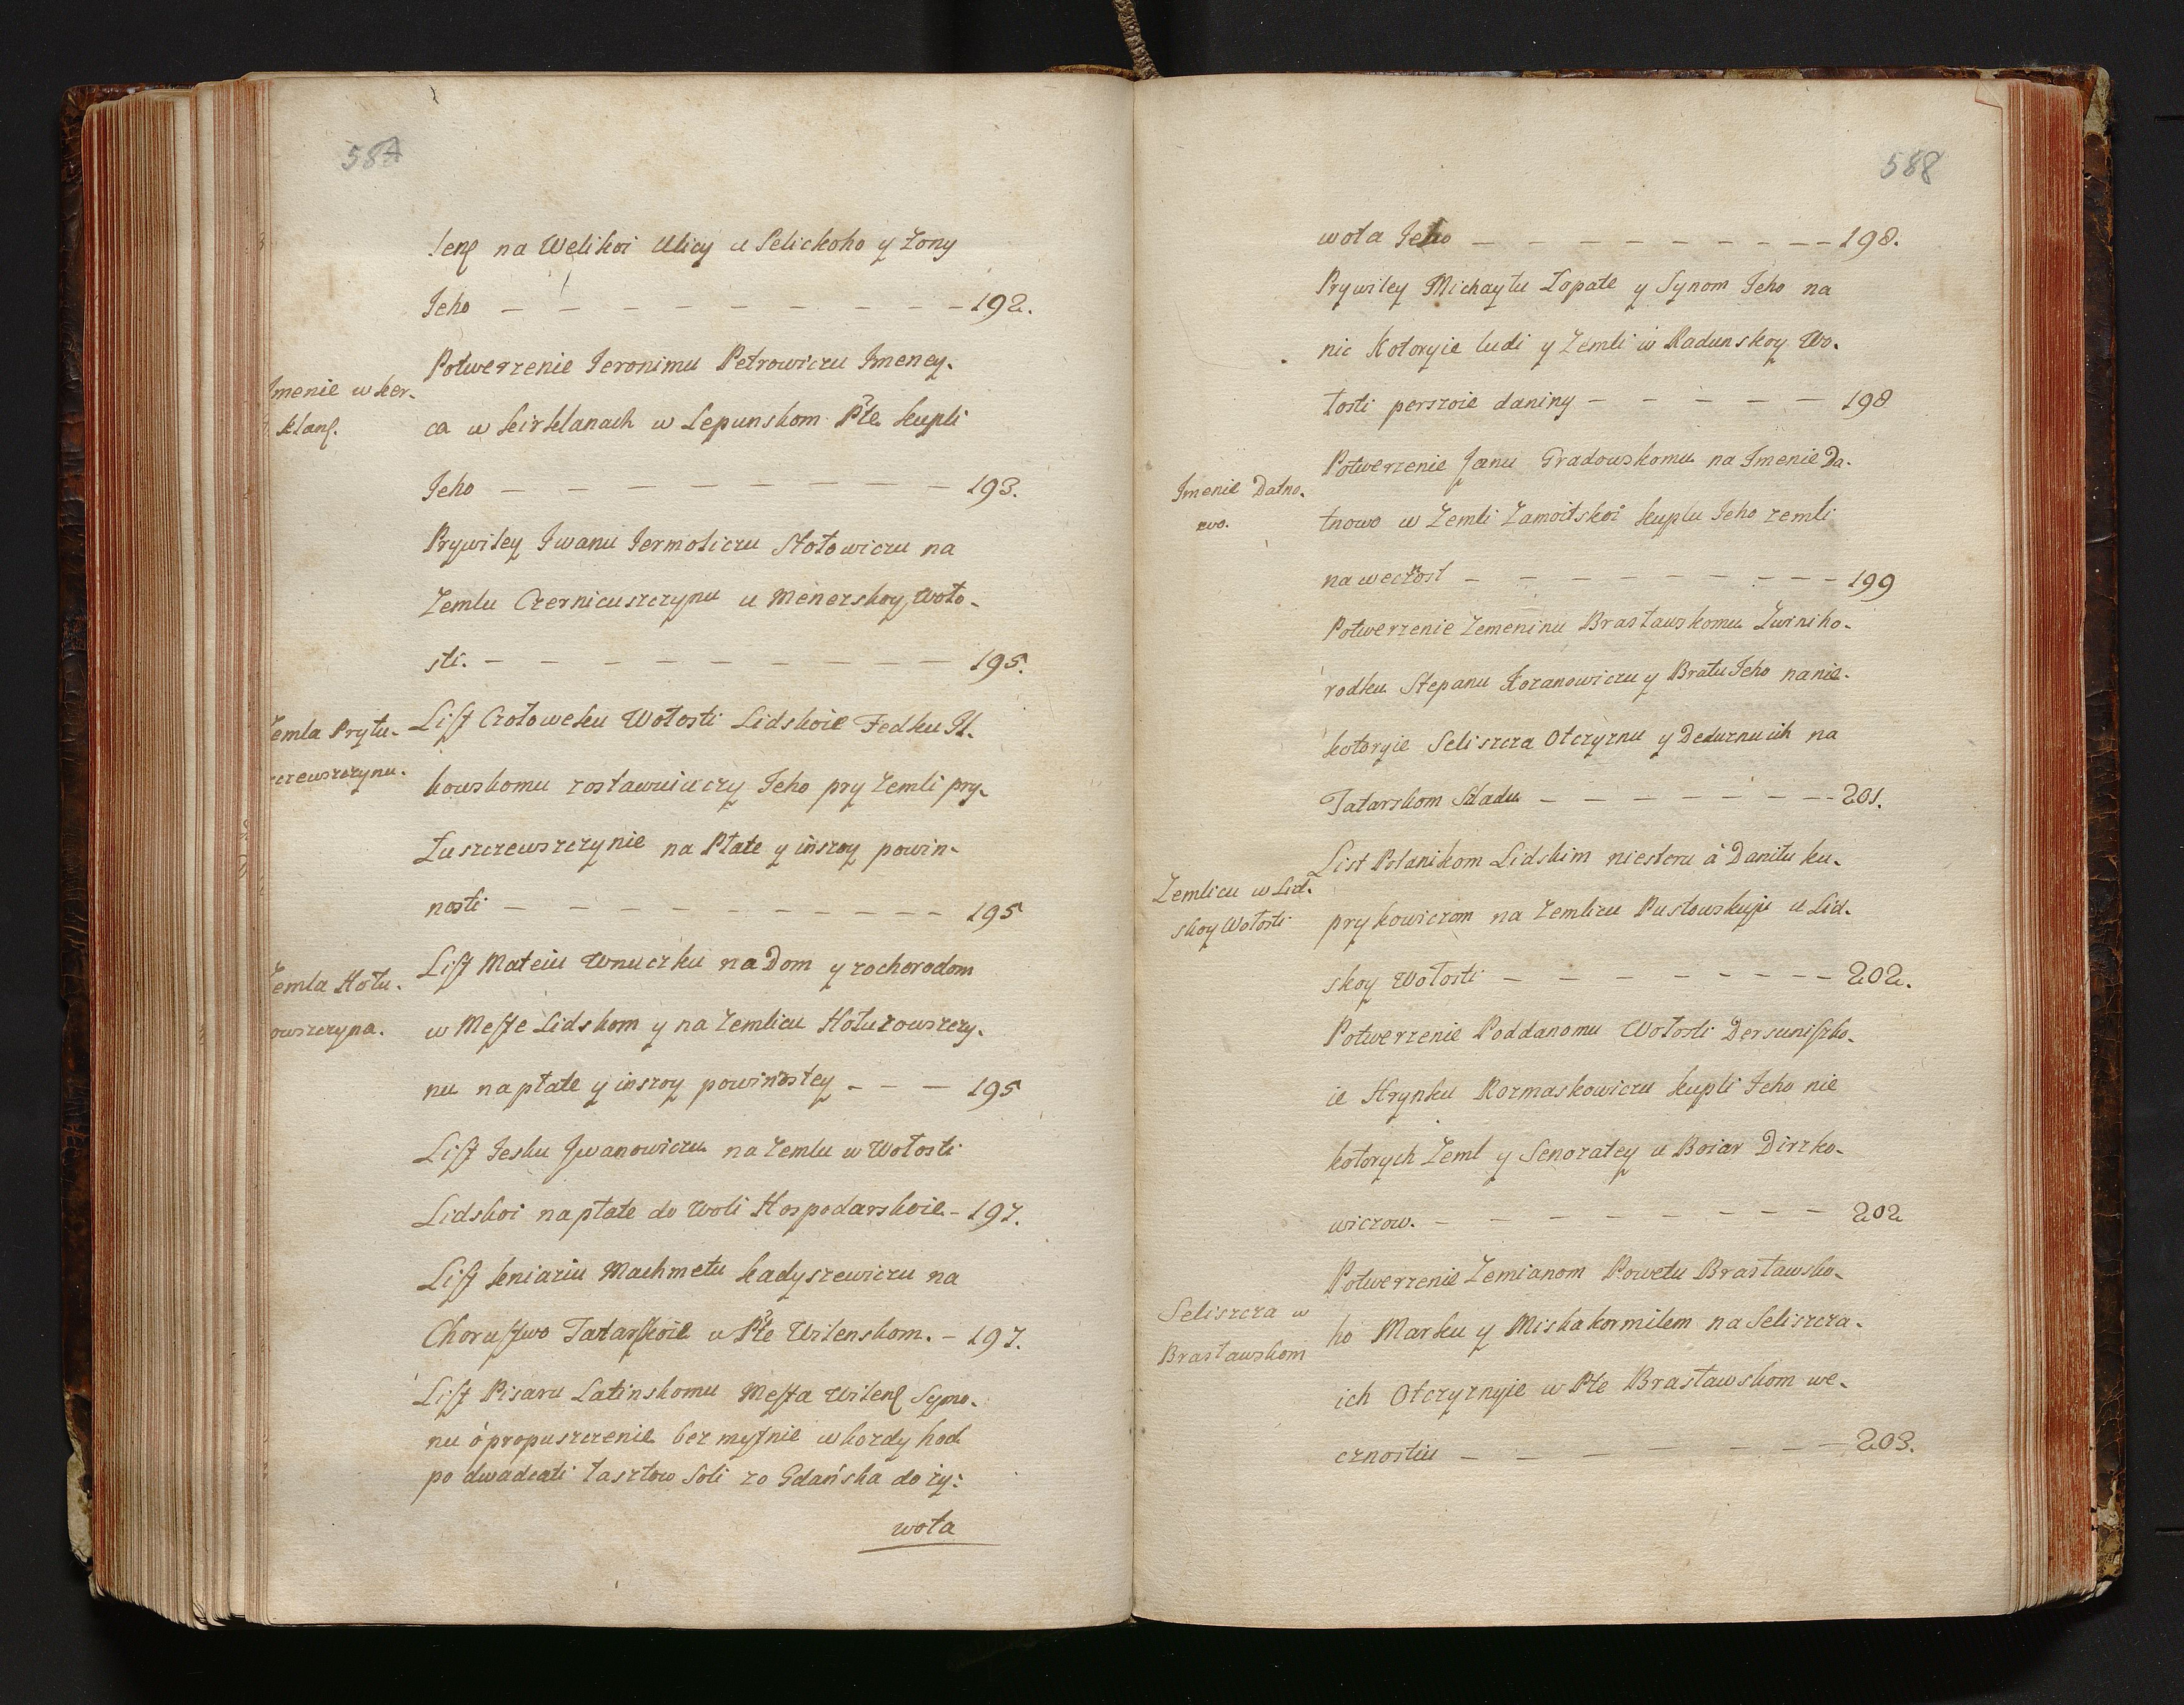 587
lenſ na Welikoi Ulicy u Selickoho y Zony
Jeho — — — — — — — — — 192.
Potwerzenie Jeronimu Petrowiczu Jmeney.
Jmenie w ker.
klanſ.
ca w keirklanach w Lepunskom Pte kupli
Jeho — — — — — — — — — 193.
Prywiley Jwanu Jermoliczu Słotowiczu na
Zemlu Czernicuszczynu u Menerskoy Woło-
sti. — — — — — — — — — 195.
emla Prytu-
czewszczynu.
List Czołoweku Wołosti Lidskoie Fedku Jł-
kowskomu zostawuiuczy Jeho pry Zemli pry-
Łuszczewszczynie na Płate y inszoy powin-
nosti — — — — — — — — — 195
emla Hołu.
owszczyna.
List Mateiu Wnuczku na Dom y zochorodom
w Meste Lidskom y na Zemlicu Hołuzowszczy-
nu na płate y inszoy powinnostey — — — 195
List Jesku Jwanowiczu na Zemlu w Wołosti
Lidskoi na płate do Woli Hospodarskoie - 197.
List kniaziu Machmetu kadyszewiczu na
Chorustwo Tatarskoie u Pte Wilenskom. - 197.
List Pisaru Latinskomu Mesta Wilenſ Symo-
nu o propuszczenie bez mytnie w kozdy hod
po dwadcati Łasztow Soli zo Gdańska do ży-
wota
588
wota Jeho — — — — — — — — — 198.
Prywiley Michayłu Łopate y Synom Jeho na
nie Kotoryie ludi y Zemli w Radunskoy Wo-
łosti perszoie daniny — — — — — 198
Jmenie Datno.
wo.
Potwerzenie Janu Gradowskomu na Jmenie Da-
tnowo w Zemli Zamoitskoi kuplu Jeho zemli
na wecznost — — — — — — — — 199
Potwerzenie Zemeninu Brasławskomu Zwiniho-
rodku Stepanu Kozanowiczu y Bratu Jeho na nie-
kotoryie Seliszcza Otczyznu y Deduznu ich na
Tatarskom Szladu — — — — — — — 201.
Zemlicu w Lid.
skoy Wołosti
List Polanikom Lidskim niesteru a Daniłu ku-
prykowiczom na Zemlicu Pustowskuju u Lid-
skoy Wołosti — — — — — — — 202.
Potwerzenie Poddanomu Wołosti Dersuniszko-
ie Hrynku Rozmaskowiczu kupli Jeho nie
kotorych Zeml y Senozatey u Boiar Dirzko-
wiczow. — — — — — — — — 202
Seliszcza w
Brasławskom
Potwerzenie Zemianom Powetu Brasławsko-
ho Marku y Miska kormilem na Seliszcza-
ich Otczyznyie w Pte Brasławskom we-
cznostiu — — — — — — — 203.